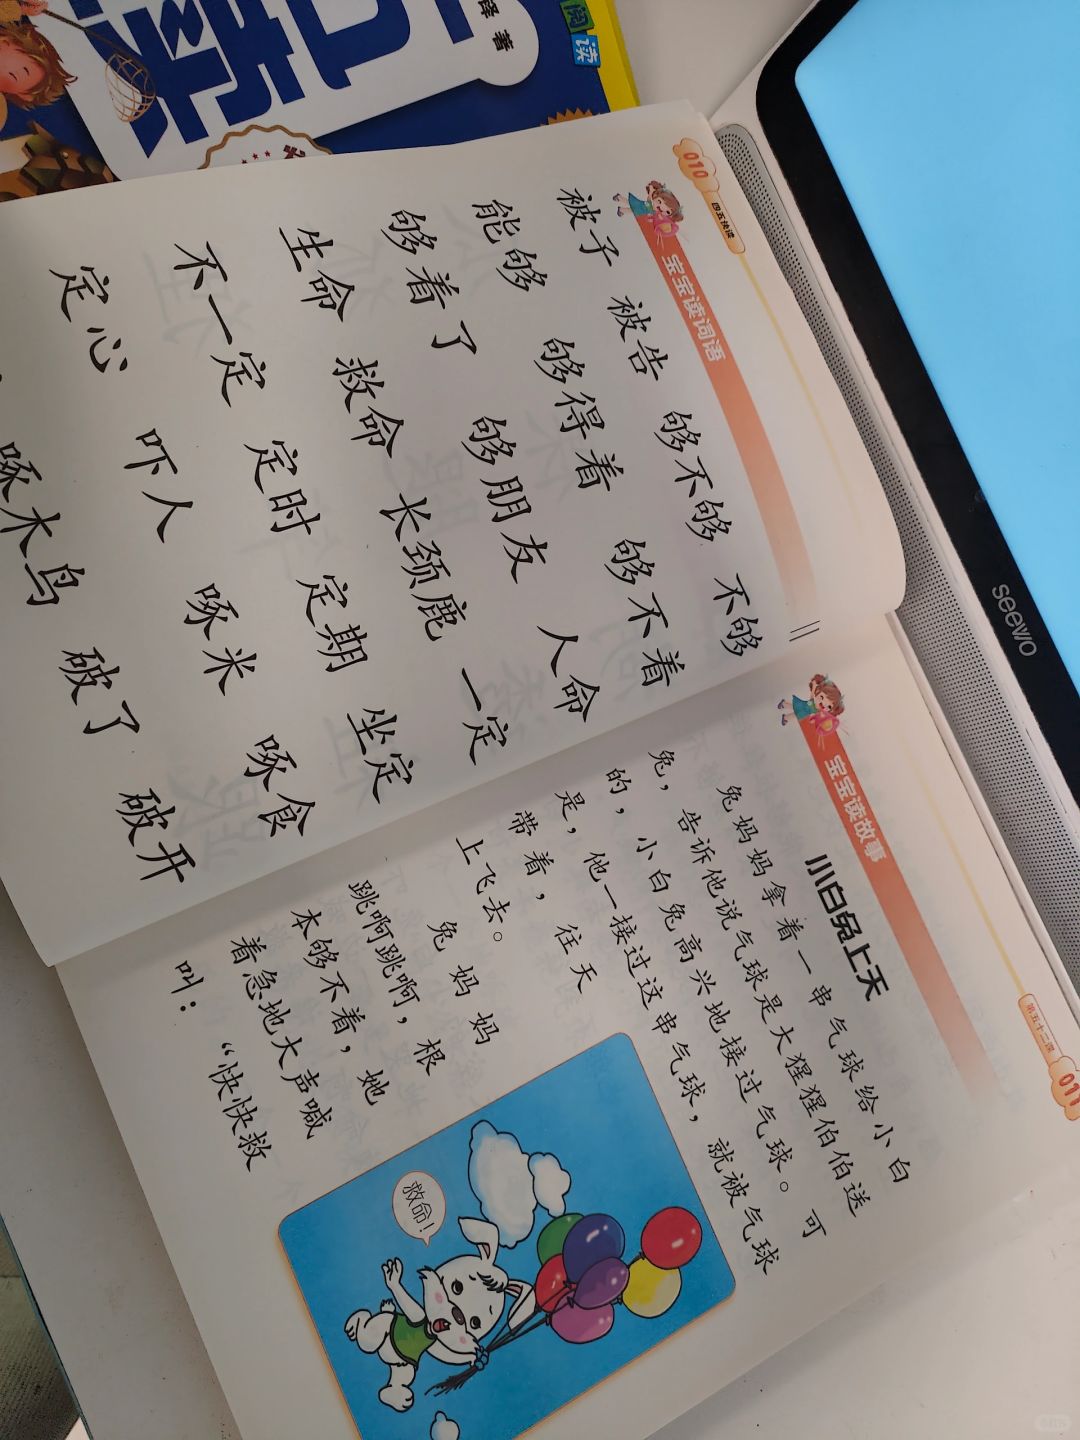 译 著
阅读
010
四五快读
宝宝读词语
被子 被告 够不够 不够
能够 够得着 够不着
够着了 够朋友 人命
生命 救命 长颈鹿 一定
不一定 定时 定期 坐定
定心 吓人 啄米 啄食
啄木鸟 破了 破开
第五十二课
011
宝宝读故事
小白兔上天
兔妈妈拿着一串气球给小白
兔，告诉他说气球是大猩猩伯伯送
的，小白兔高兴地接过气球。可
是，他一接过这串气球，就被气球
带着，往天
上飞去。
兔妈妈
跳啊跳啊，根
本够不着，她
着急地大声喊
叫：“快快救
救命！
seewo